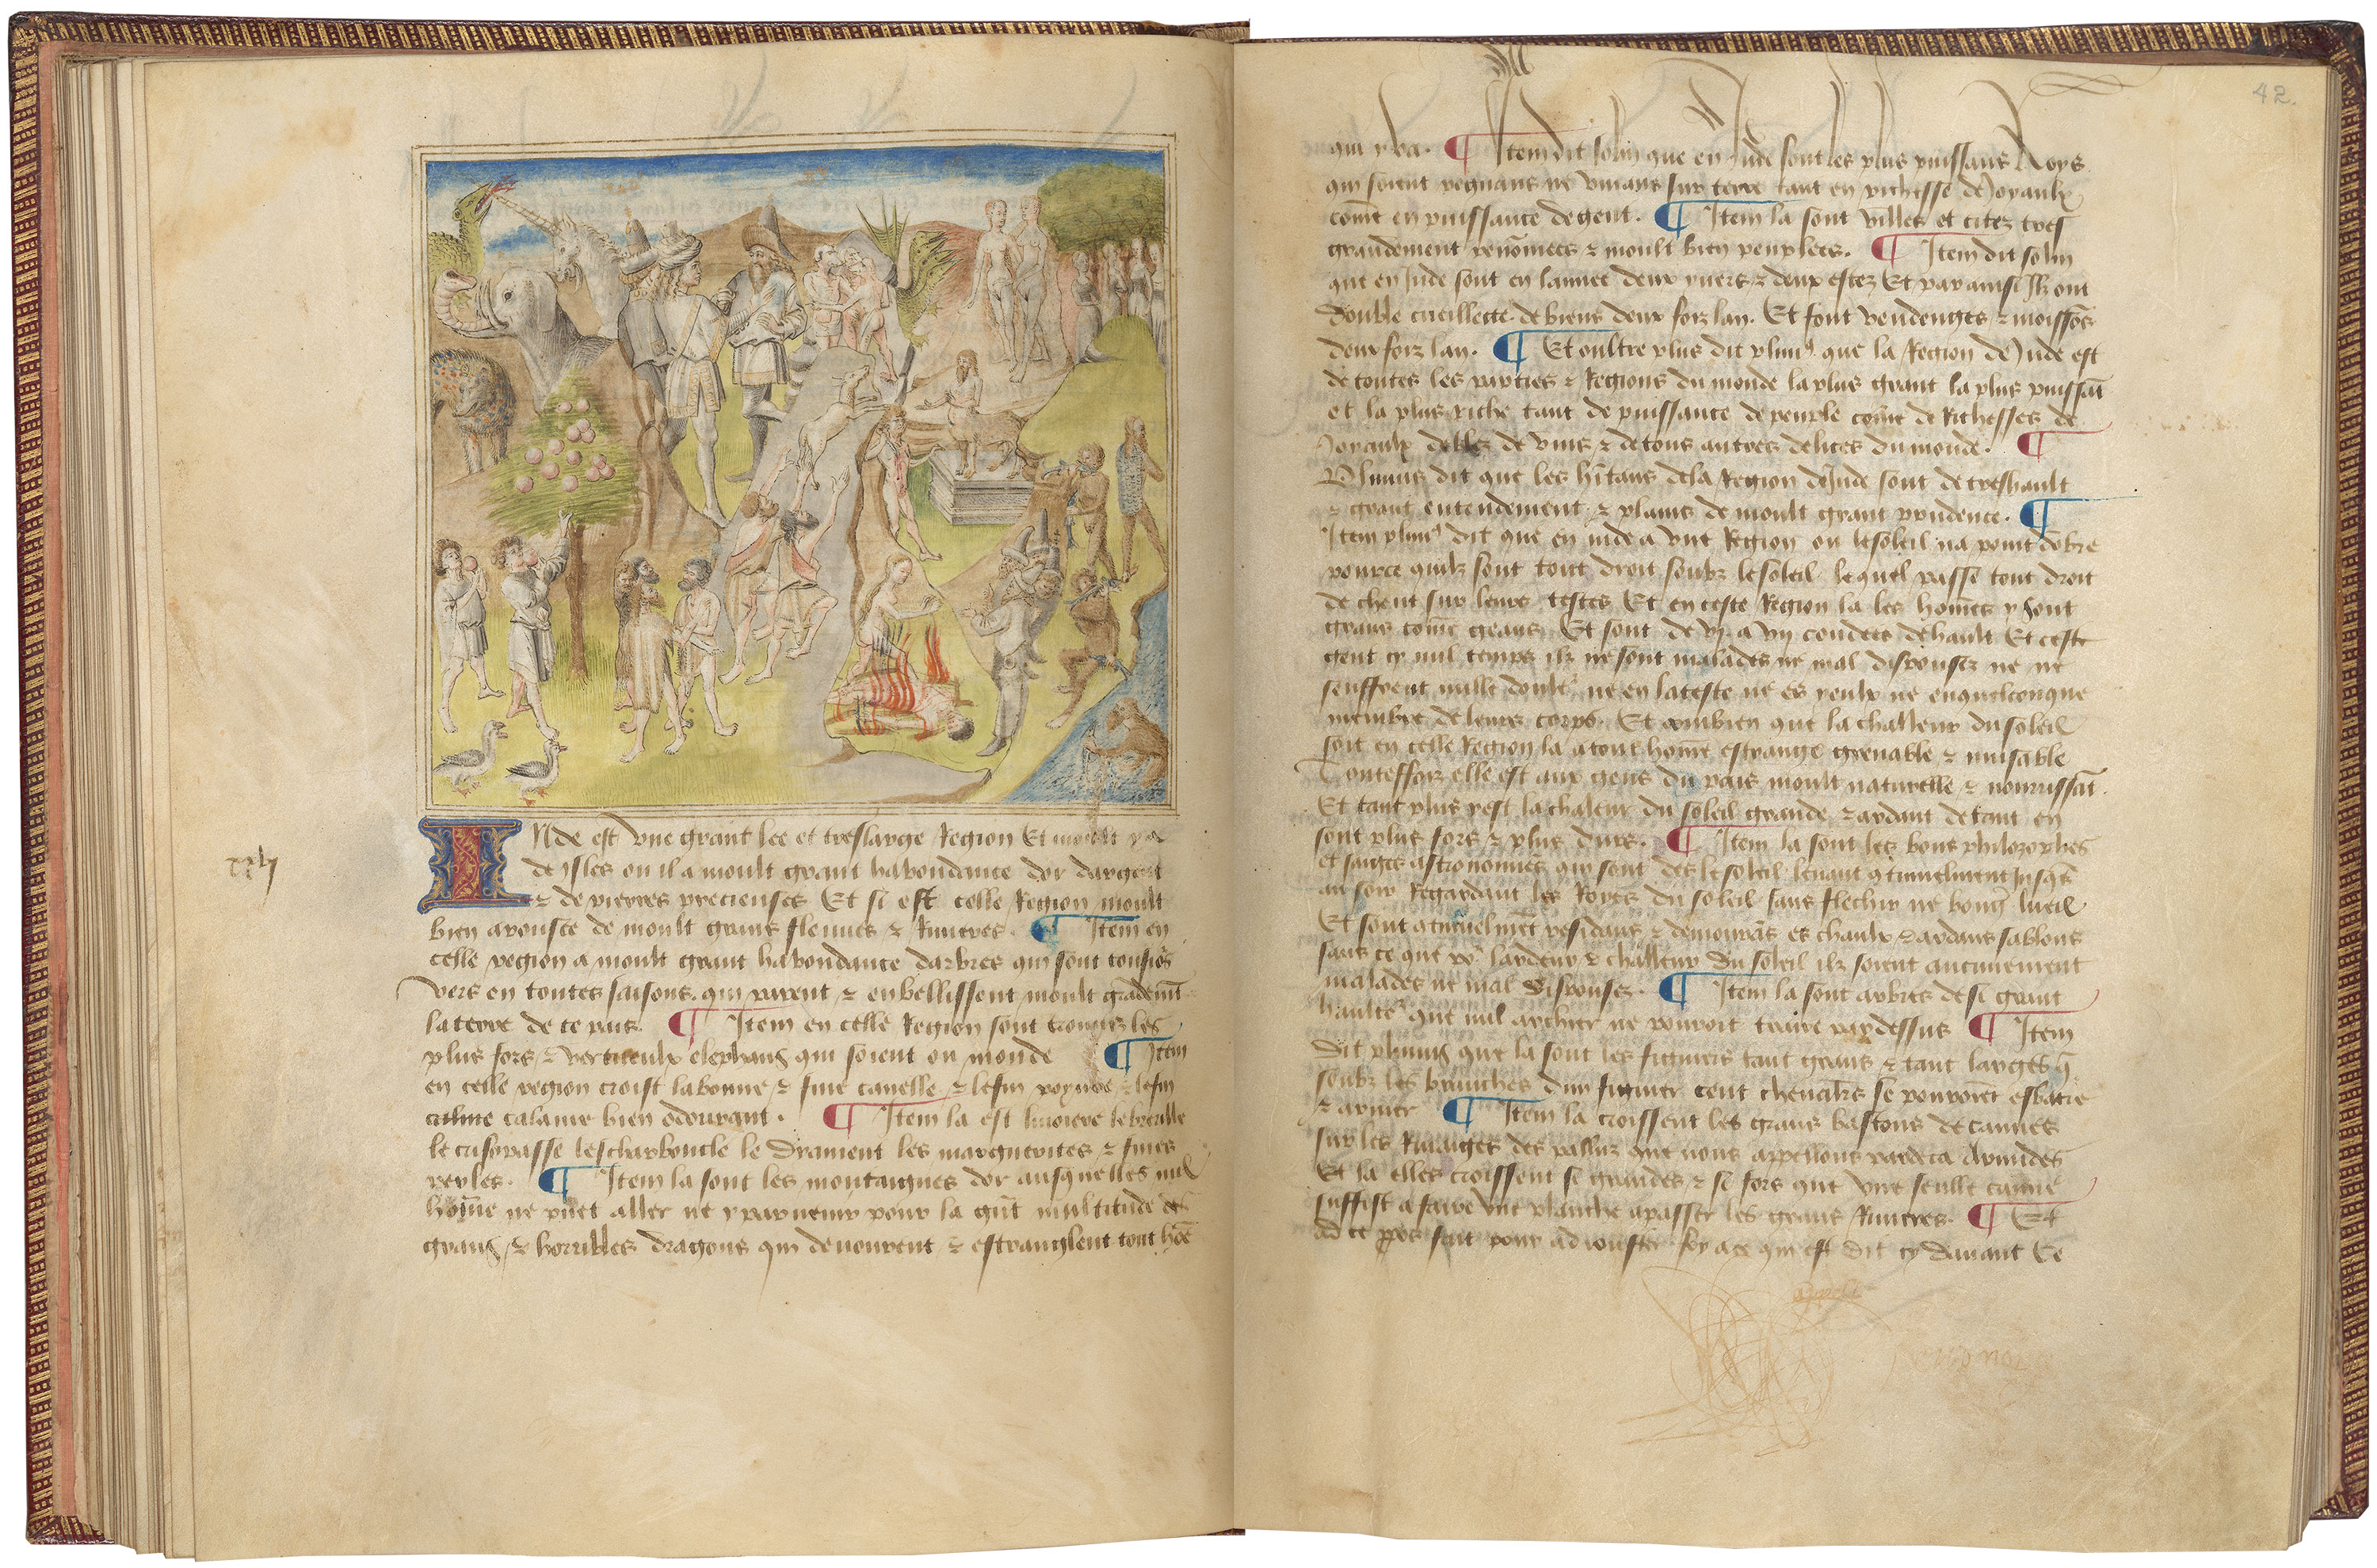 INde est une grant lee et treslarge Region Et moult y a
de ysles ou il a moult grant habondance dor dargent
& de pierres precieuses Et si est celle Region moult
bien arousee de moult grans fleuves & Rivieres. ¶ Item en
celle region a moult grant habondance darbres qui sont tousiors
vers en toutes saisons. qui parent & enbellissent moult grademt
la terre de ce pais. ¶ Item en celle Region sont trouvez les
plus fors & vertueulx elephans qui soient ou monde ¶ Item
en celle region croist la bonne & fine canelle & le fin poyvre & le fin
calame bien odourant. ¶ Item la est livoiere le berille
le crisopasse lescharboucle le dyament les marguerites & fines
perles. ¶ Item la sont les montaignes dor ausquelles nul
home ne puet aller ne y parvenir pour la gnt multitude des
grans & horribles dragons qui devourent & estranglent tout hoe
42.
qui y va. ¶ Item dit solin que en Inde sont les plus puissans Roys
qui soient regnans ne vivans sur terre tant en richesse de Joyaulx
come en puissance de gent. ¶ Item la sont villes et citez tres
grandement renomees & moult bien peuplees. ¶ Item dit solin
que en Inde sont en lannee deux yvers & deux estez Et par ainsi Ilz ont
double cueillette de biens deux foiz lan. Et font vendenges & moissos
deux foiz lan. ¶ Et oultre plus dit plini9 que la Region de Inde est
de toutes les parties & Regions du monde la plus grant la plus puissat
et la plus riche tant de puissance de peuple come de Richesses de
Joyaulx de blez de vins & de tous autres delices du monde. ¶
Plinius dit que les hitans de la Region de Inde sont de treshault
& grant entendement & plains de moult grant prudence. ¶
Item plini9 dit que en inde a une Region ou le soleil na point dobre
pource quilz sont tout droit soubz le soleil lequel passe tout droit
de cheut sur leurs testes Et en ceste Region la les homes y sont
grans come geans Et sont de vj a vij coudees de hault Et ceste
gent cy nul temps ilz ne sont malades ne mal disposez ne ne
seuffrent nulle doule ne en la teste ne es yeulx ne en quelconque
membre de leurs corps. Et combien que la challeur du soleil
soit en celle Region la a tout home estrange grevable & nuisable
Toutesfoiz elle est aux gens du pais moult naturelle & nourrissat.
Et tant plus y est la chaleur du soleil grande & ardant de tant en
sont plus fors & plus durs. ¶ Item la sont les bons philozophes
et saiges astronomies qui sont des le soleil levant continuelment jusqs
au soir Regardant les Roiees du soleil sans flechir ne bougr lueil
Et sont atinuelmet residans & demourans es chaulx & ardans sablons
sans ce que por lardeur & challeur du soleil ilz soient aucunement
malades ne mal disposez. ¶ Item la sont arbres de si grant
haulter que nul archier ne pouroit traire par dessus ¶ Item
dit plinius que la sont les figuiers tant grans & tant larges q
soubz les branches dun figuier cent chevalirs se pouroiet esbatre
& armer ¶ Item la croissent les grans bastons de cannes
sur les Rivaiges des palluz que nous appellons par deca
Et la elles croissent si grandes & si fors que une seulle canne
suffist a faire une planche a passer les grans Rivieres. ¶ Et
ad ce soy a ce qui est dit cy davant Ce